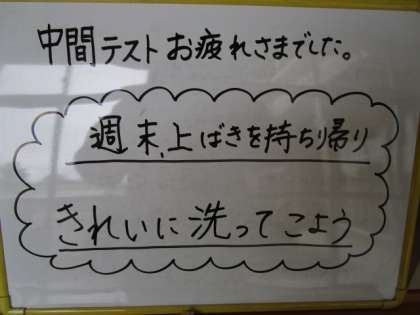 中間テストお疲れさまでした。
週末、上ばきを持ち帰り
きれいに洗ってこよう